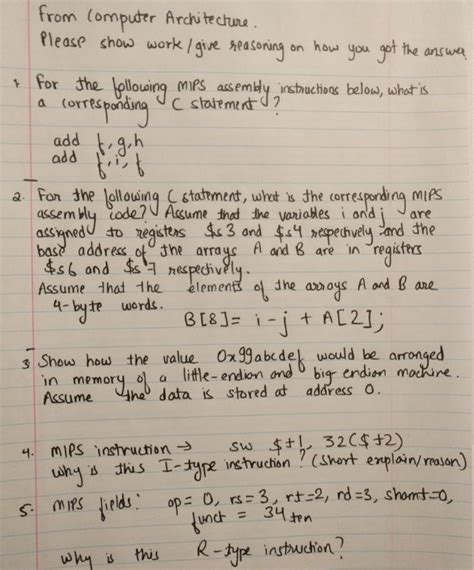 From Computer Architecture.
Please show work/give reasoning on how you got the answer.
1 For the following MIPS assembly instructions below, what is
a corresponding C statement?
add f, g, h
add f, i, f
2. For the following C statement, what is the corresponding MIPS
assembly code? Assume that the variables i and j are
assigned to registers $s3 and $s4 respectively and the
base address of the arrays A and B are in registers
$s6 and $s7 respectively.
Assume that the elements of the arrays A and B are
4-byte words.
B[8] = i - j + A[2];
3 Show how the value 0x99abcdef would be arranged
in memory of a little-endian and big endian machine.
Assume the data is stored at address 0.
4. MIPS instruction → sw $t1, 32($t2)
why is this I-type instruction? (short explain/reason)
5. MIPS fields: op = 0, rs = 3, rt = 2, rd = 3, shamt = 0,
funct = 34 ten
why is this R-type instruction?